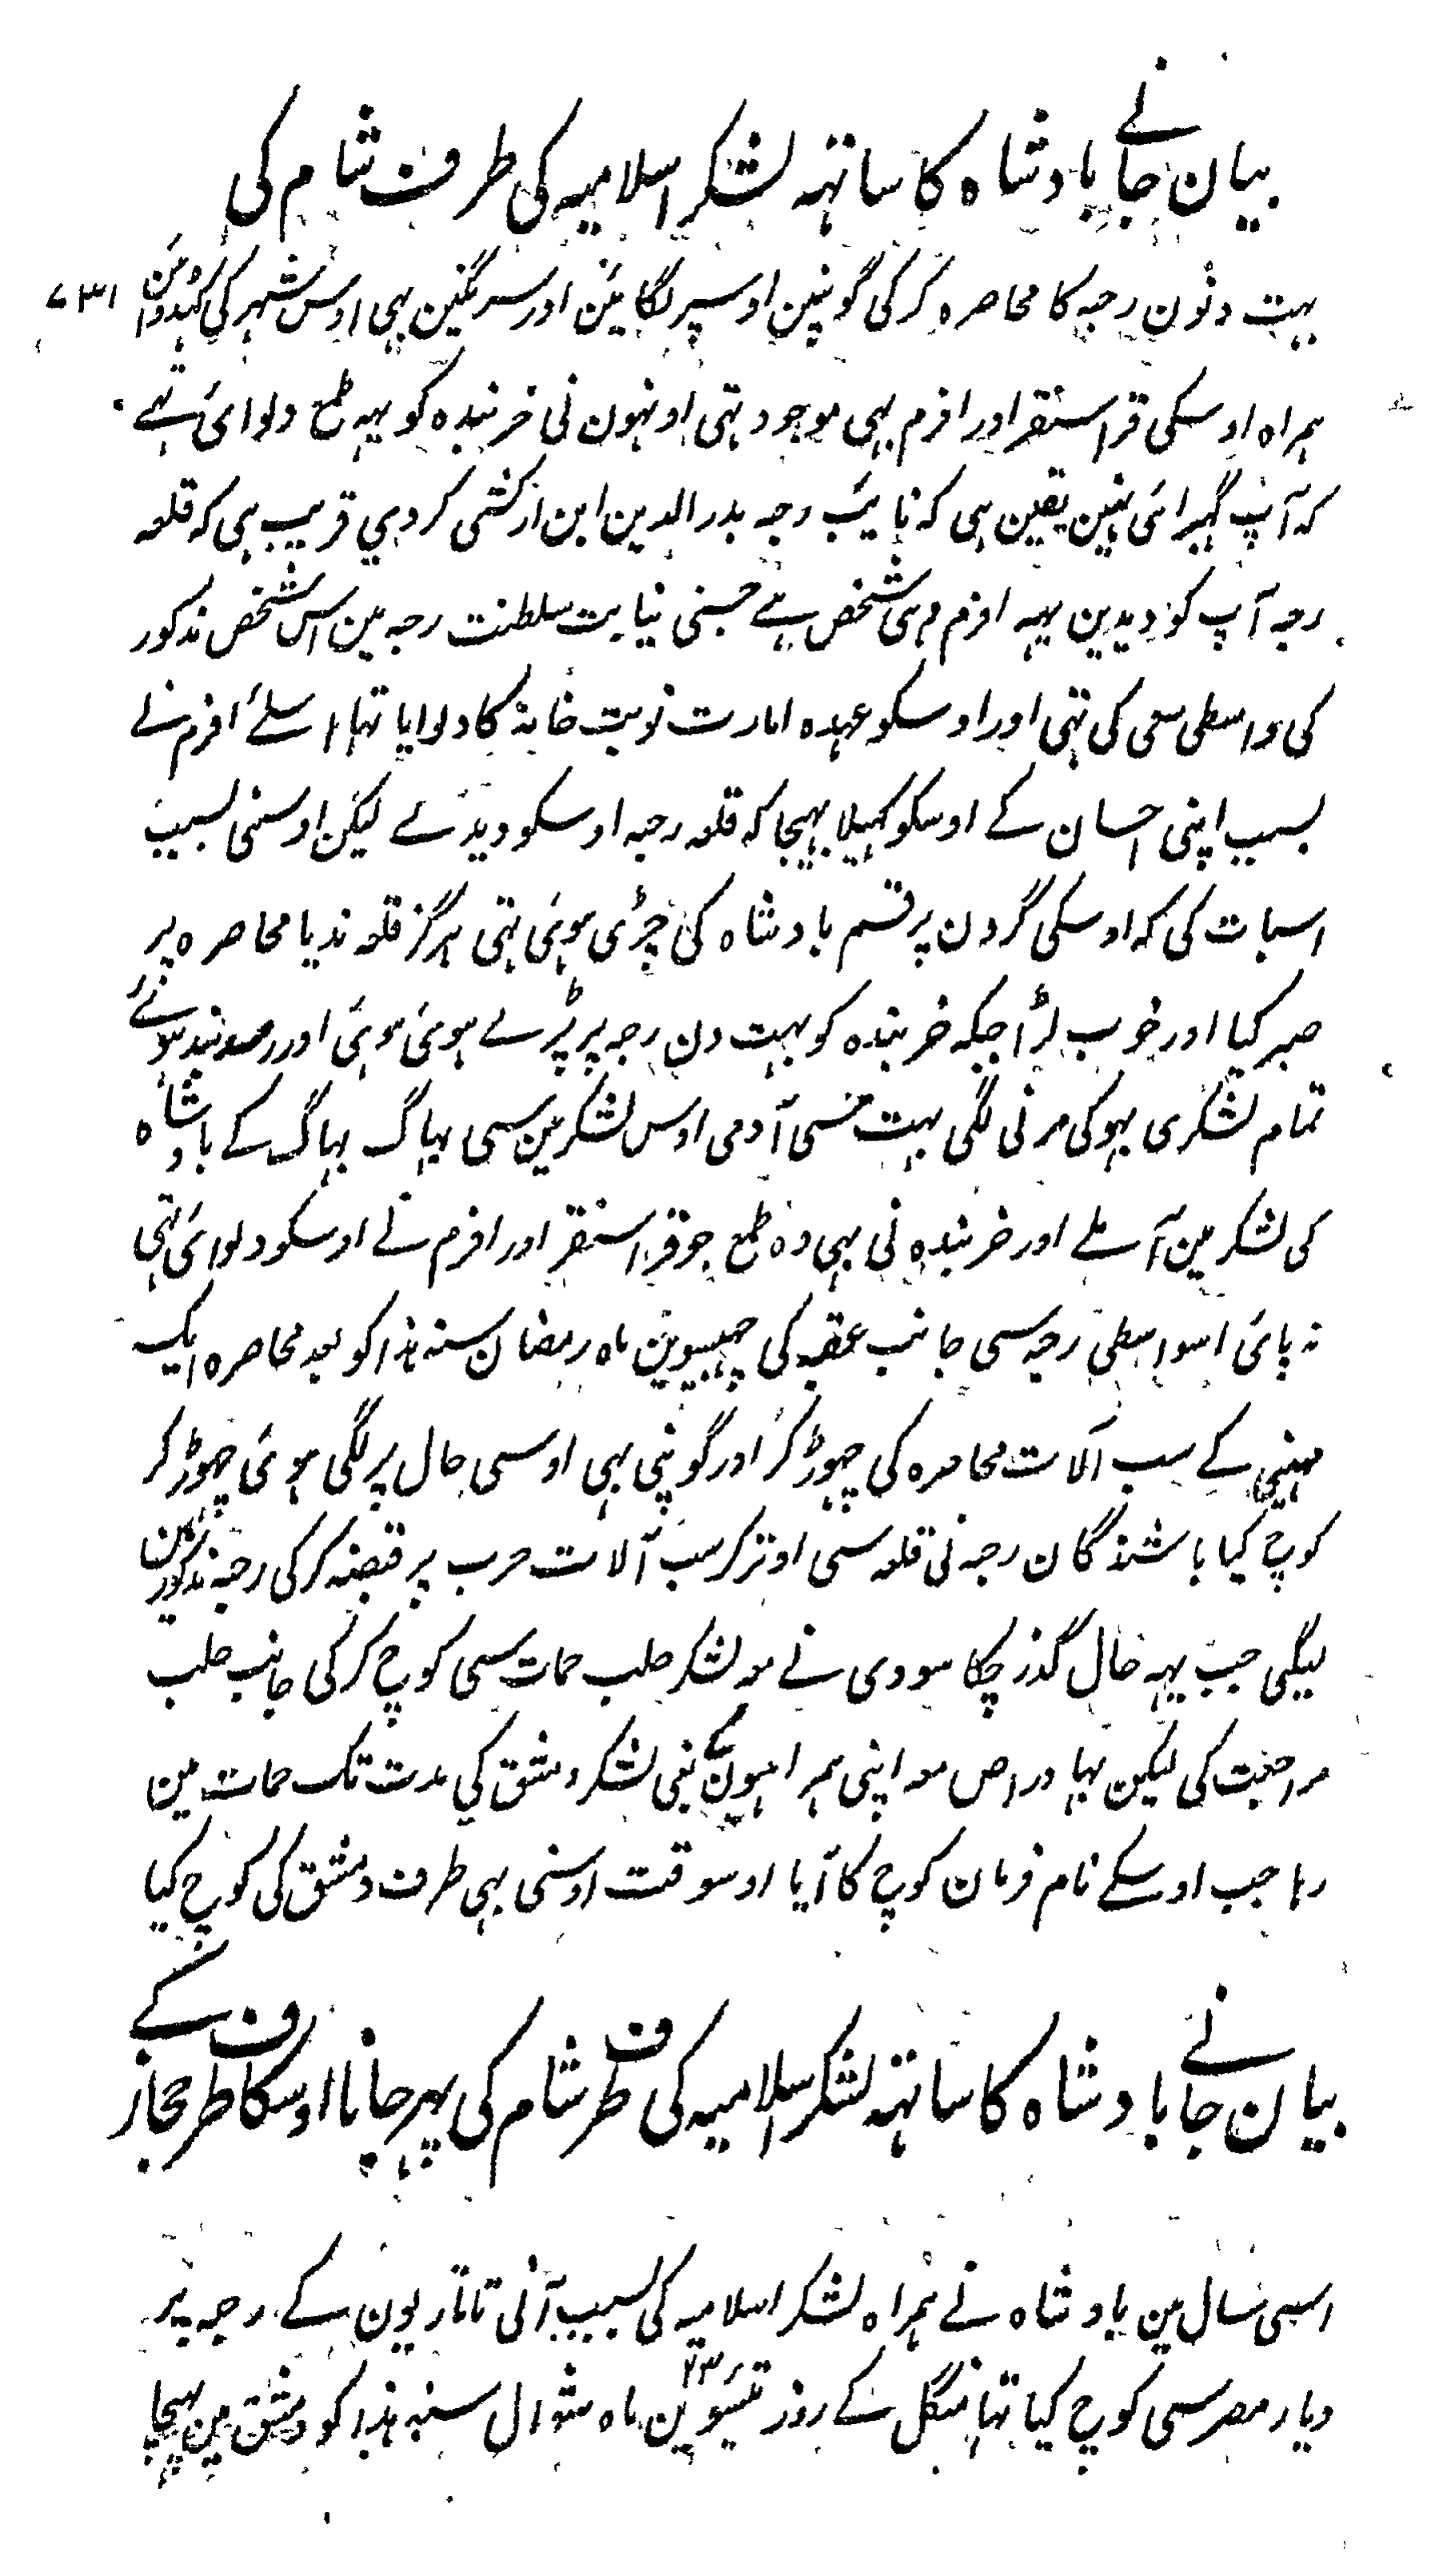 بیان جانے بادشاہ کا ساتہہ لشکر اسلامیہ کی طرف شام کی
بہت دنون رحبہ کا محاصرہ کرکی گوپنین اوسپر لگائین اور سرنگین بہی اوس شہر کی کہدوائین ٧٣١
ہمراہ اوسکی قراسنقر اور افرم بہی موجود تہی اونہون نی خربندہ کو یہہ طمع دلوائی تہے
کہ آپ گہبرائی نہین یقین ہی کہ نایب رحبہ بدرالدین ابن ارکشی کردی قریب ہی کہ قلعہ
رحبہ آپ کو دیدین یہہ افرم وہی شخص ہے جسنی نیابت سلطنت رحبہ مین اس شخص مذکور
کی واسطی سعی کی تہی اور اوسکو عہدہ امارت نوبت خانہ کا دلوایا تہا اسلئے افرم نے
بسبب اپنی احسان کے اوسکو کہلا بہیجا کہ قلعہ رحبہ اوسکو دیدے لیکن اوسنی بسبب
اسبات کی کہ اوسکی گردن پر قسم بادشاہ کی چڑی ہوئی تہی ہرگز قلعہ ندیا محاصرہ پر
صبر کیا اور خوب لڑا جبکہ خربندہ کو بہت دن رحبہ پر پڑے ہوئی ہوئی اور رصد بند ہونے
تمام لشکری بہوکی مرنی لگی بہت سی آدمی اوس لشکر مین سی بہاگ بہاگ کے بادشاہ
کی لشکر مین آ ملے اور خربندہ نی بہی وہ طمع جو قراسنقر اور افرم نے اوسکو دلوائی تہی
نہ پائی اسواسطی رحبہ سی جانب عقبہ کی چہبیسوین ماہ رمضان سنہ ہذا کو بعد محاصرہ ایک
مہینی کے سب آلات محاصرہ کی چہوڑکر اور گوپنی بہی اوسی حال پر لگی ہوئی چہوڑ کر
کوچ کیا باشندگان رحبہ نی قلعہ سی اوترکر سب آلات حرب پر قبضہ کرکی رحبہ مذکور مین
لیگی جب یہہ حال گذر چکا سودی نے معہ لشکر حلب حمات سی کوچ کرکی جانب حلب
مراجعت کی لیکن بہادراص معہ اپنی ہمراہیون کے یعنی لشکر دمشق کی مدت تک حمات مین
رہا جب اوسکے نام فرمان کوچ کا آیا اوسوقت اوسنی بہی طرف دمشق کی کوچ کیا
بیان جانے بادشاہ کا ساتہہ لشکر اسلامیہ کی طرف شام کی پہر جانا اوسکا طرف حجاز کے
اسی سال مین بادشاہ نے ہمراہ لشکر اسلامیہ کی بسبب آنی تاتاریون کے رحبہ پر
دیار مصر سی کوچ کیا تہا منگل کے روز تئیسوین ٢٣ ماہ شوال سنہ ہذا کو دمشق مین پہنچا